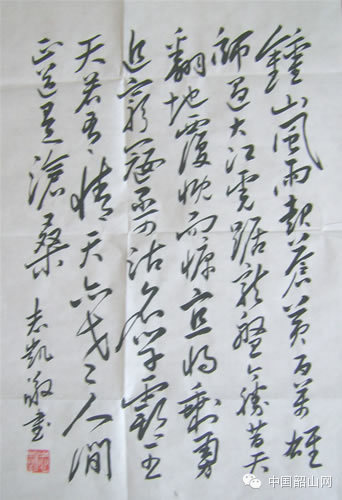 鍾山風雨起蒼黃百萬雄
師過大江虎踞龍盤今勝昔天
翻地覆慨而慷宜將剩勇
追窮寇不可沽名學霸王
天若有情天亦老人間
正道是滄桑
志凱敬書
中国韶山网